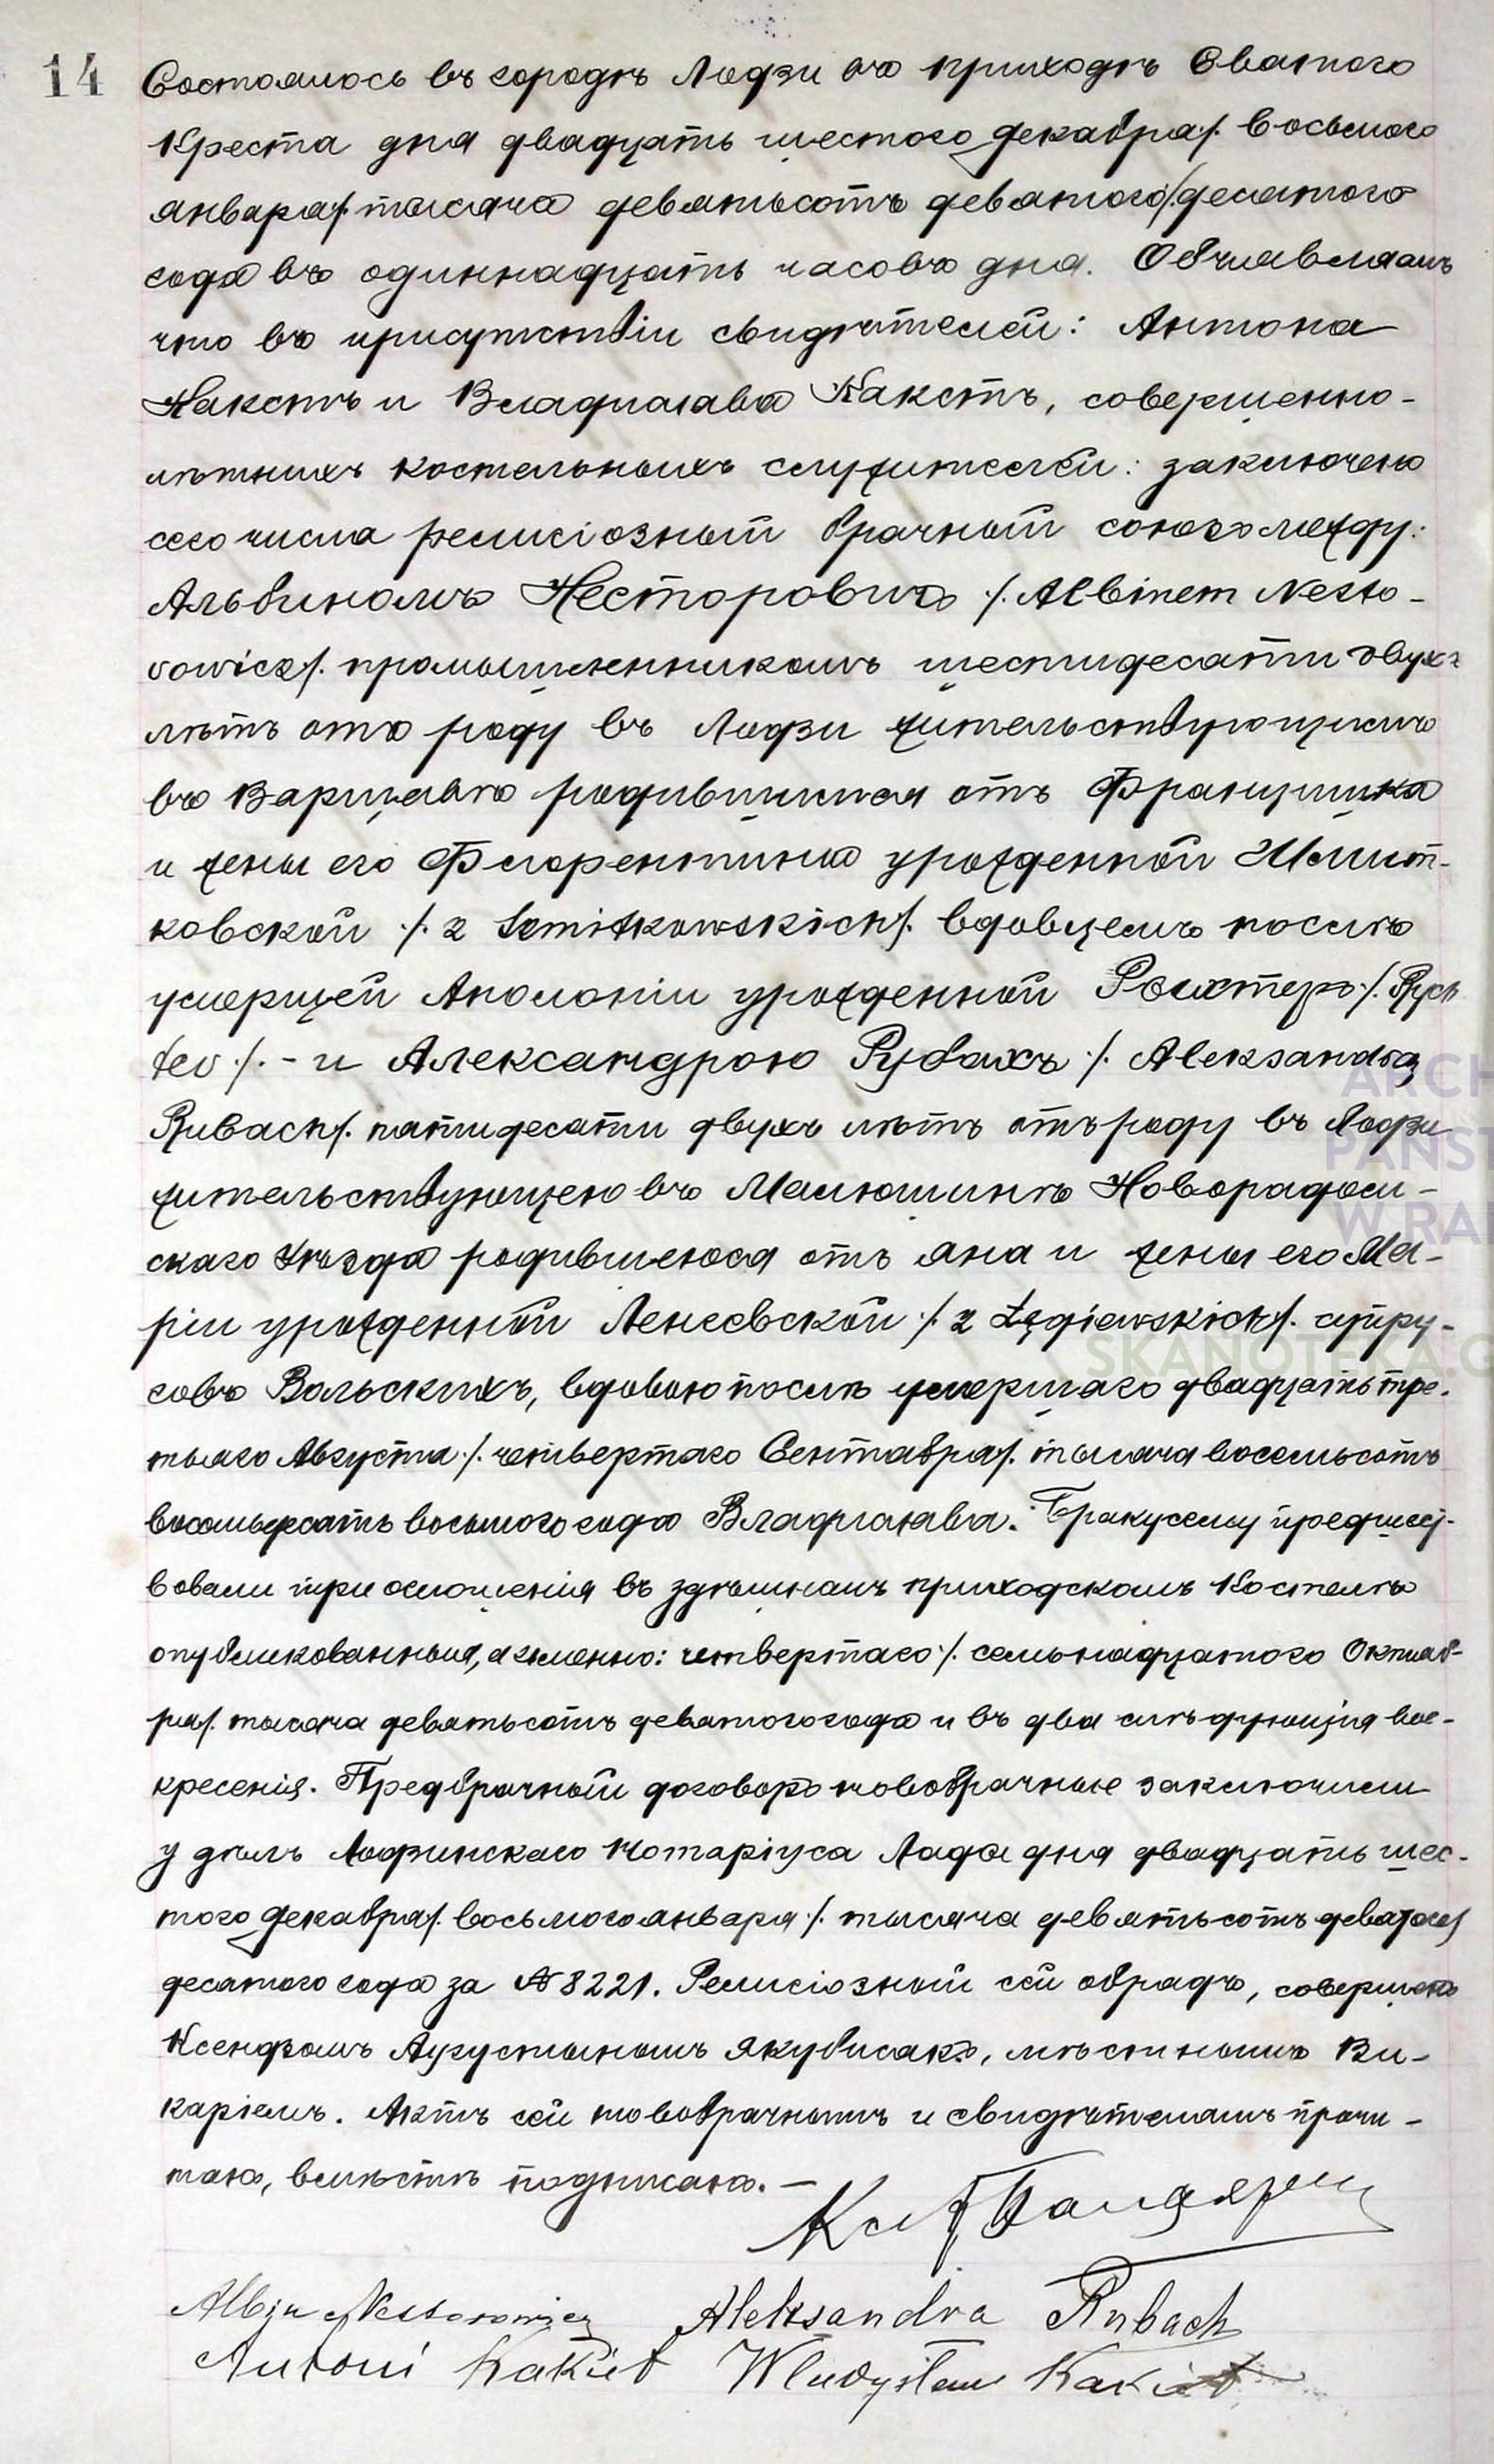 14
Состоялось въ городѣ Лодзи въ приходѣ Святого
Креста дня двадцать шестого декабря /. восьмого
января /. тысяча девятьсотъ девятого /. десятого
года въ одиннадцать часовъ дня. Объявляемъ
что въ присутствіи свидѣтелей: Антона
Какетъ и Владислава Какетъ, совершенно-
лѣтнихъ костельныхъ служителей: заключенъ
сего числа религіозный брачный союзъ между:
Альбиномъ Несторовичъ /. Albinem Nesto-
rowicz /. промышленникомъ шестидесяти двухъ
лѣтъ отъ роду въ Лодзи жительствующимъ
въ Варшавѣ родившимся отъ Францишка
и жены его Флорентины урожденной Шмит-
ковской /. z Szmitkowskich /. вдовцемъ послѣ
умершей Аполоніи урожденной Рыхтеръ /. Rych
ter /. - и Александрою Рубахъ /. Aleksandrą
Rubach /. пятидесяти двухъ лѣтъ отъ роду въ Лодзи
жительствующею въ Малюшинѣ Новорадом-
скаго уѣзда родившеюся отъ Яна и жены его Ма-
ріи урожденной Ленгевской /. z Łęgiewskich /. супру-
говъ Вольскихъ, вдовою послѣ умершаго двадцать тре-
тьяго Августа /. четвертаго Сентября /. тысяча восемьсотъ
восемьдесятъ восьмого года Владислава. Браку сему предшест-
вовали три оглашенія въ здѣшнемъ приходскомъ Костелѣ
опубликованныя, а именно: четвертаго /. семьнадцатого Октяб-
ря /. тысяча девятьсотъ девятого года и въ два слѣдующія вос-
кресенія. Предбрачный договоръ новобрачные заключили
у дѣлъ Лодзинскаго Нотаріуса Лада дня двадцать шес-
того декабря /. восьмого января /. тысяча девятьсотъ девятого /
десятого года за № 8221. Религіозный сей обрядъ, совершенъ
Ксендзомъ Аугустыномъ Якубисякъ, мѣстнымъ Ви-
каріемъ. Актъ сей новобрачнымъ и свидѣтелямъ прочи-
танъ, вмѣстѣ подписанъ. -
Albin Nestorowicz Aleksandra Rubach
Antoni Kakiet Władysław Kakiet